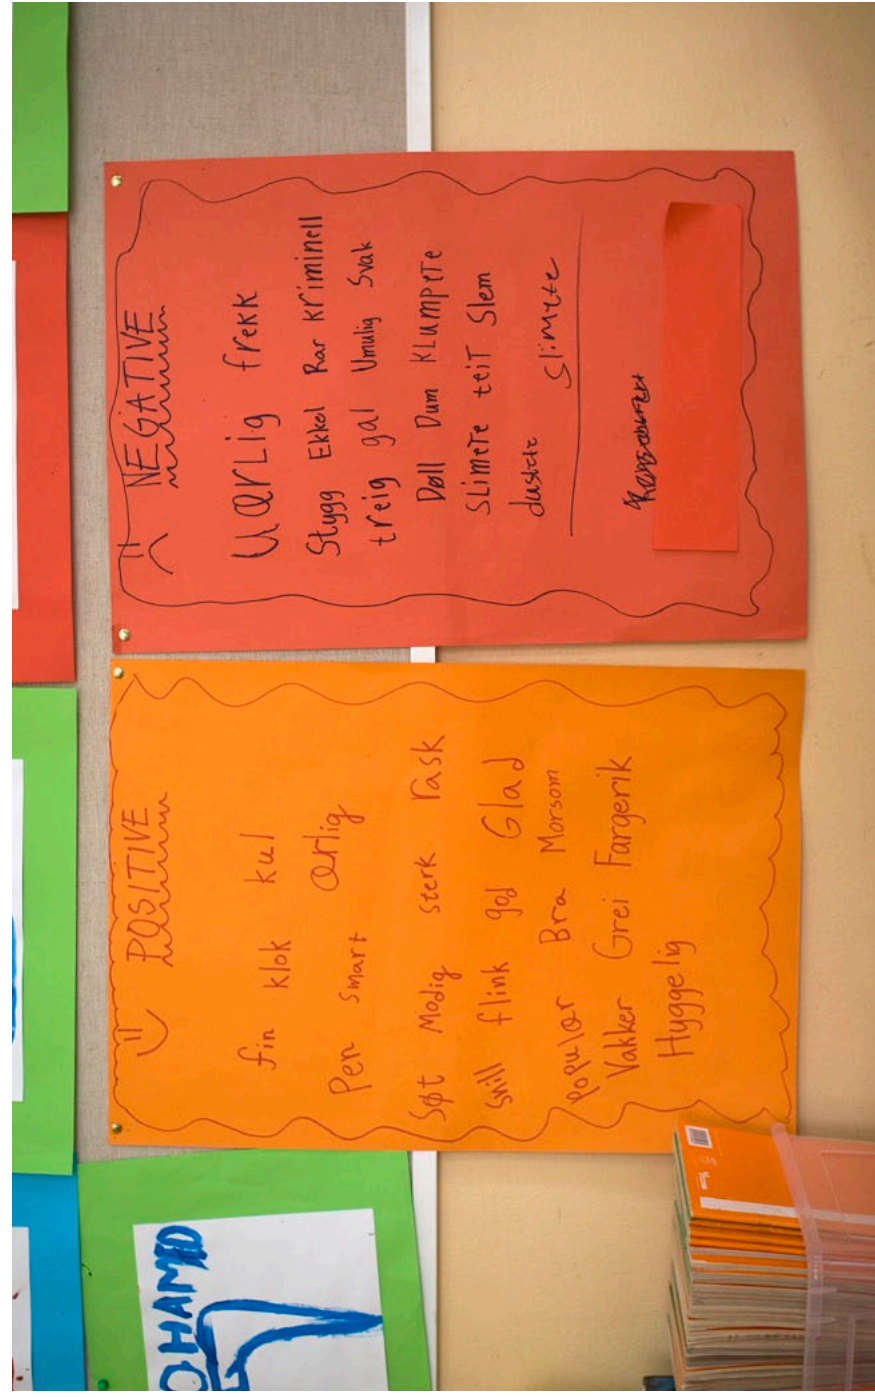 POSITIVE
fin klok kul
Pen smart ærlig
Søt Modig sterk rask
snill flink god Glad
populær Bra Morsom
Vakker Grei Fargerik
Hyggelig
NEGATIVE
UærLig frekk
Stygg Ekkel Rar Kriminell
treig gal Umulig Svak
Døll Dum KLumpeTe
SLimeTe teiT Slem
dustete slimete
OHAMED